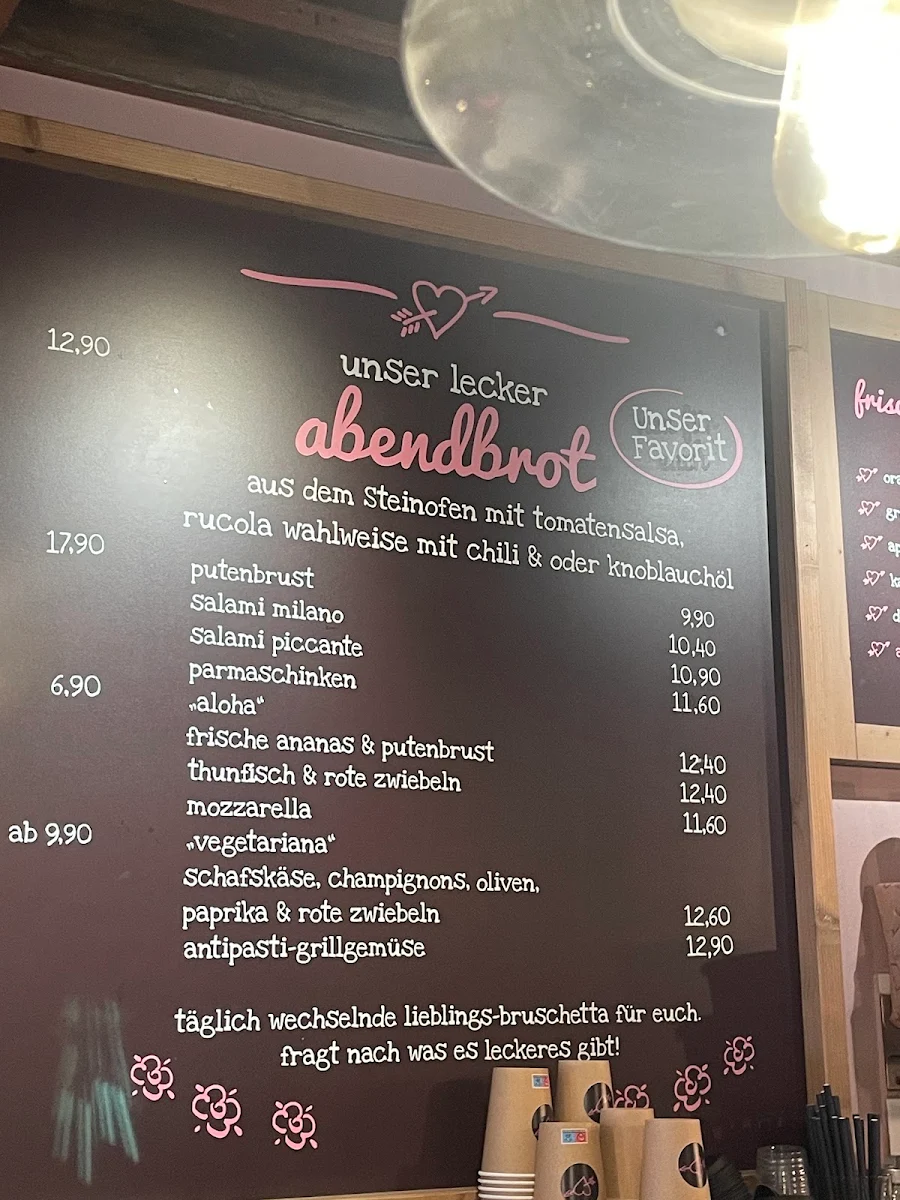 12,90
17,90
6,90
ab 9,90
unser lecker
abendbrot
Unser
Favorit
aus dem steinofen mit tomatensalsa,
rucola wahlweise mit chili & oder knoblauchöl
putenbrust 9,90
salami milano 10,40
salami piccante 10,90
parmaschinken 11,60
„aloha“
frische ananas & putenbrust 12,40
thunfisch & rote zwiebeln 12,40
mozzarella 11,60
„vegetariana“
schafskäse, champignons, oliven,
paprika & rote zwiebeln 12,60
antipasti-grillgemüse 12,90
täglich wechselnde lieblings-bruschetta für euch.
fragt nach was es leckeres gibt!